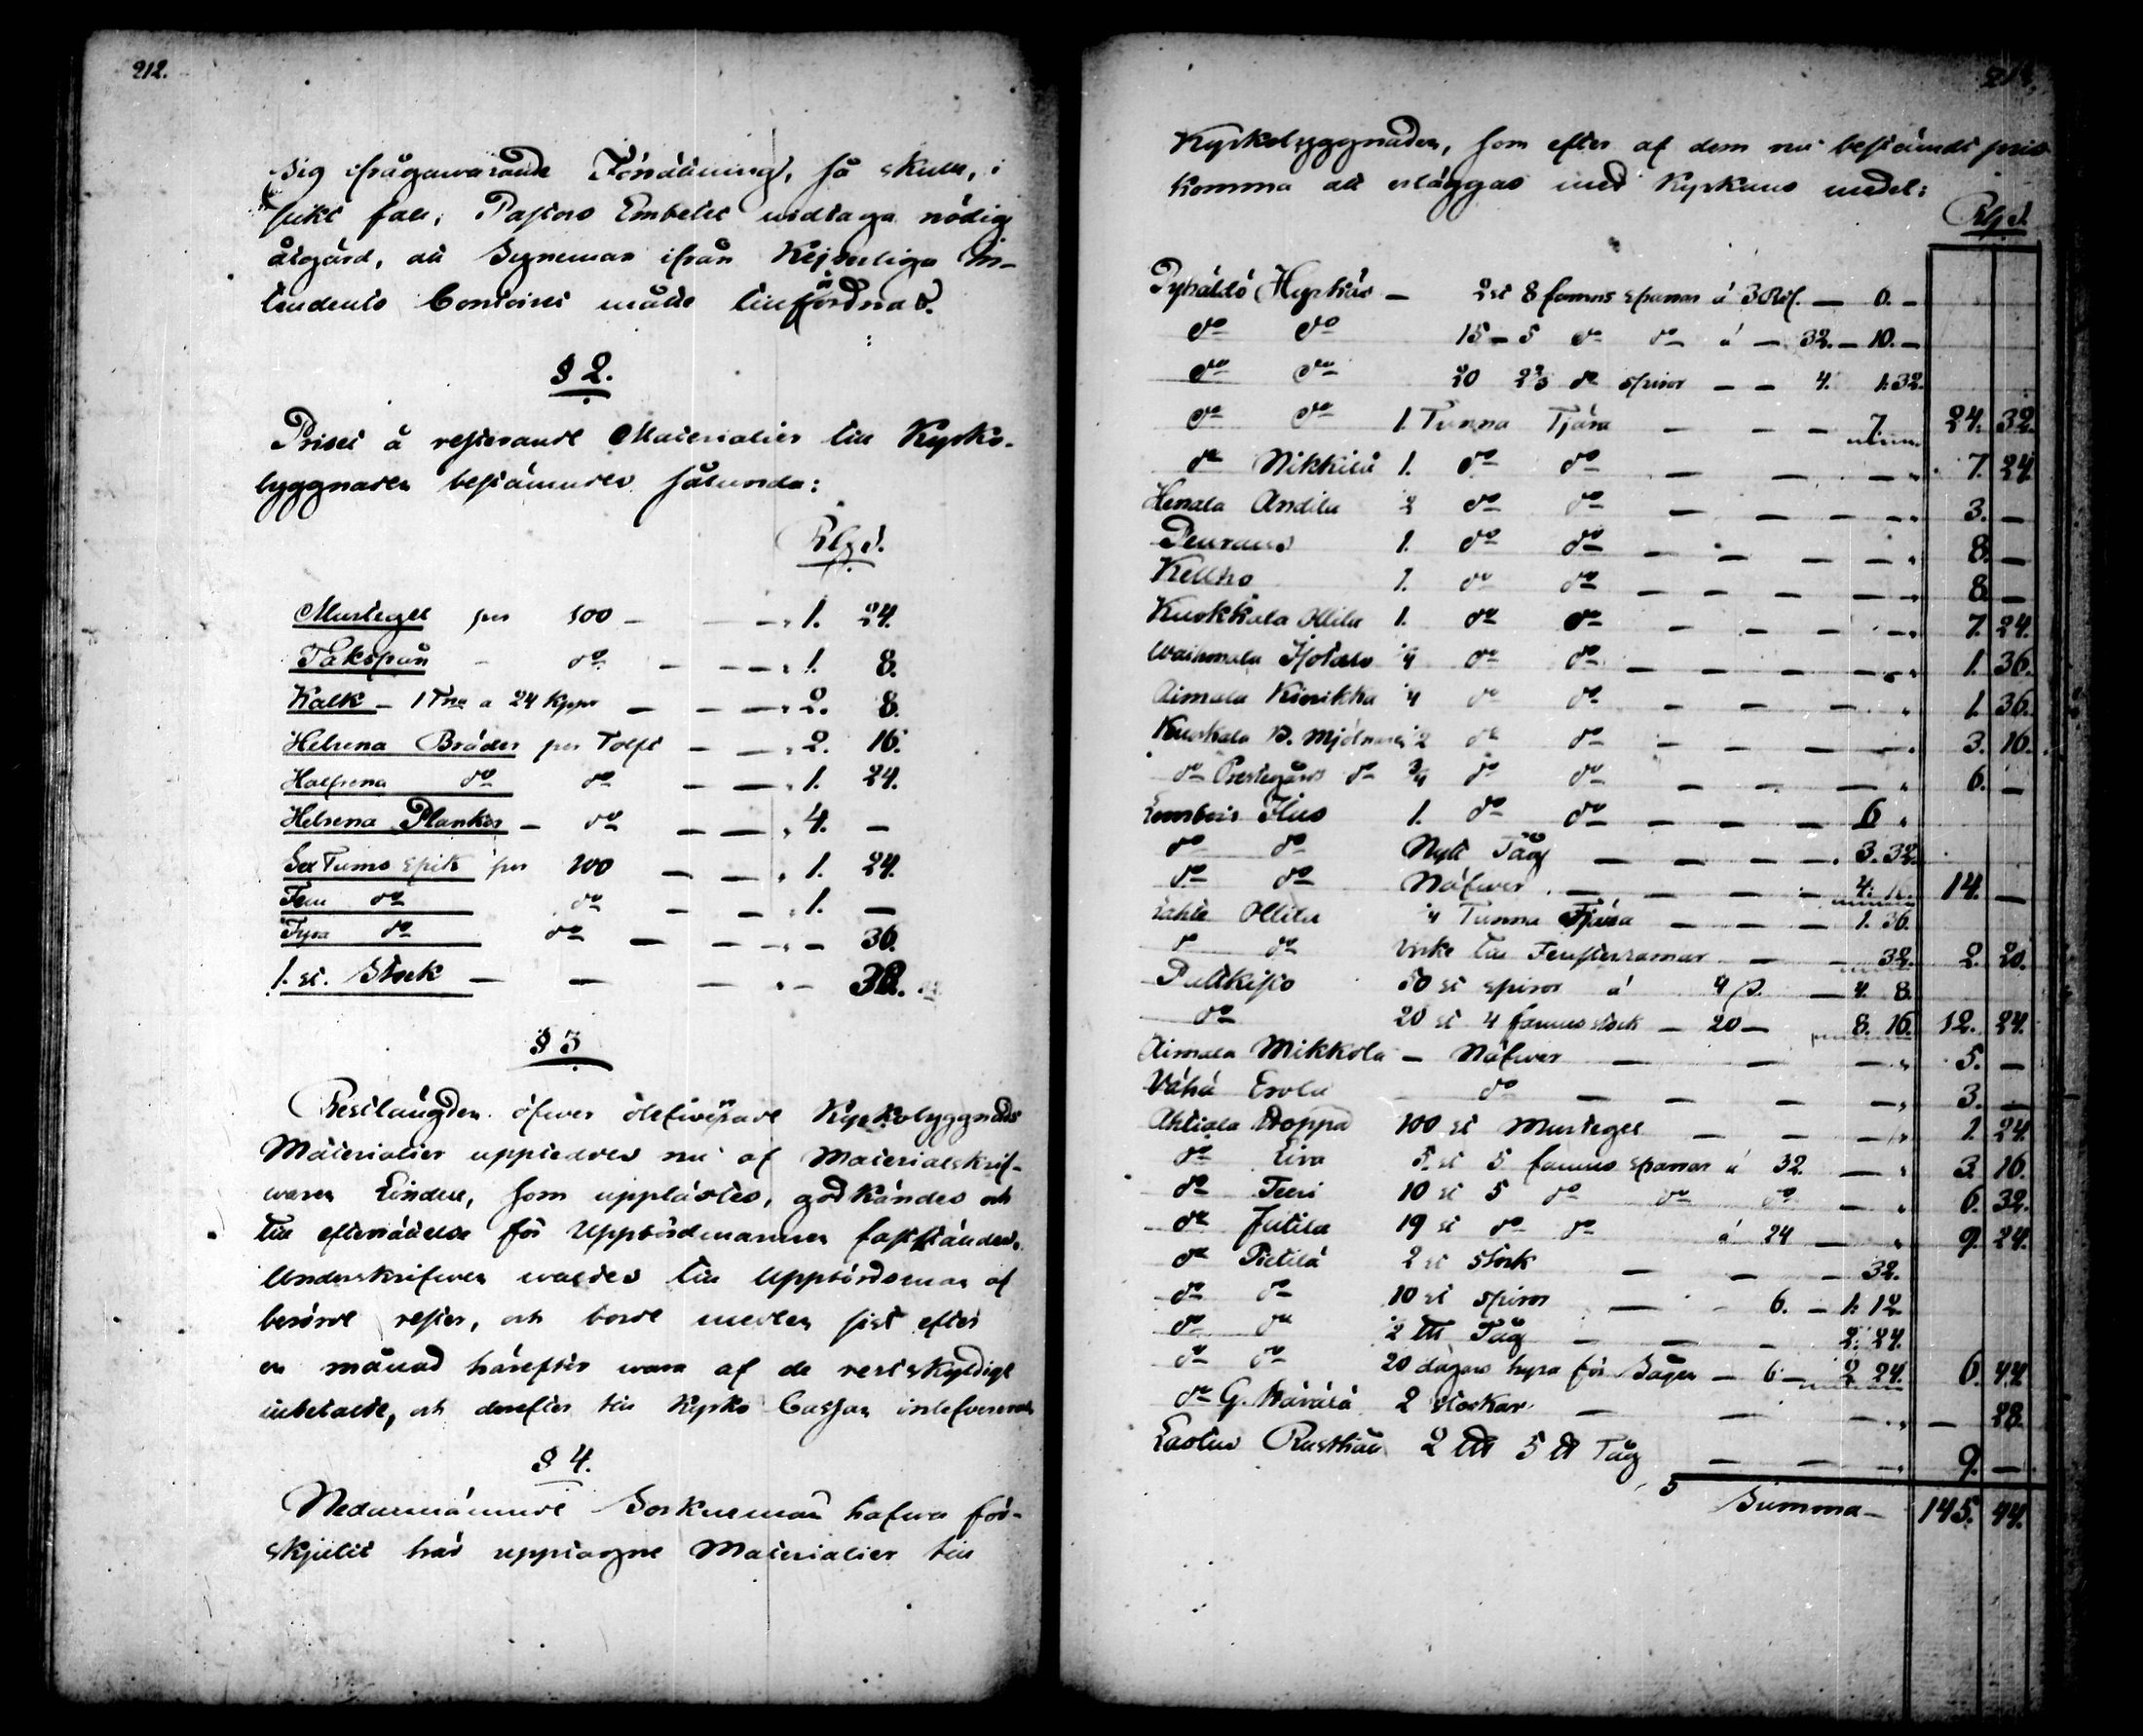 212.
sig ifrågawarande Förrätning, så skulle, i
slikt fall, Pastors Embetet widtaga nödig
åtgärd, att Syneman ifrån Kejserliga In-
tendents Contoiret måtte tillförordnas.
§ 2.
Priset å resterande Materialier till Kyrko-
byggnaden bestämdes sålunda:
Rbg S.
Murtegel per 100 — — — 1. 24.
Takspån - do — — — 1. 8.
Kalk — 1 Tna a 24 Kppr — — — 2. 8.
Helrena Bräder per Tolft — — 2. 16.
Halfrena do do — — 1. 24.
Helrena Plankor — do — — 4. —
Sex Tums Spik per 100 — — 1. 24.
Fem do do — — 1. —
Fyra do do — — — 36.
1. st. Stock — — — — 32.
§ 3
Restlängden öfwer olefwererade Kyrkobyggnads
Materialier uppteddes nu af Materialskrif-
waren Lindell, som upplästes, godkändes och
till efterrättelse för Uppbördmannen fastställdes.
Underskrifwen waldes till Uppbördsman af
berörde rester, och borde medlen sist efter
en månad härefter wara af de restskyldige
inbetalte, och derefter till Kyrko Cassan inlefwererade
§ 4.
Nedannämnde Sockneman hafwa för-
skjutit här upptagne Materialier till
213.
Kyrkobyggnaden, som efter af dem nu bestämdt pris
komma att erläggas med Kyrkans medel:
Rbg S.
Pyhältö Hyrkäs — 2 st 8 famns sparrar á 3 Rbl. — 6. —
do do 15 — 5 do do á — 32. — 10. —
do do 20 2 2/3 do spiror — — 4. 1. 32.
do do 1. Tunna Tjära — — — 7. 24. 32.
do Nikkilä 1. do do — — — 7. 24.
Henala Andila 1/2 do do — — — 3. —
Peuraus 1. do do — — — 8. —
Kellho 1. do do — — — 8. —
Kuokkala Ollila 1. do do — — — 7. 24.
Waihmala Isotalo 1/4 do do — — — 1. 36.
Aimala Kinikka 1/4 do do — — — 1. 36.
Kuokkala B. Mjölnare 1/2 do do — — — 3. 16.
do Prestegårds do 3/4 do do — — — 6. —
Lembois Ilus 1. do do — — — 6
do do Nytt Tåg — — — 3. 32.
do do Näfwer — — — 4. 16. 14. —
Lahte Ollila 1/4 Tunna Tjära — — — 1. 36.
do do Virke till Fensterramar — — 32. 2. 20.
Pultkisto 50 st spiror á 4 S. — 4. 8.
do 20 st 4 famns stock — 20 — 8. 16. 12. 24.
Aimala Mikkola — Näfwer — — — 5. —
Vähä Erola do — — — 3. —
Ahtiala Hoppa 100 st Murtegel — — — 1. 24
do Eira 5 st 5 famns sparrar á 32 — 3. 16.
do Teeri 10 st 5 do do do — 6. 32.
do Jutila 19 st do do á 24 — 9. 24.
do Pietilä 2 st stock — — — 32.
do do 10 st spiror — 6. — 1. 12
do do 2 l℔ Tåg — — — 2. 24.
do do 20 dagars hyra för Sågen — 6 — 2 24. 6. 44
do G. Häválä 2 stockar — — — — 28.
Laotus Rusthåll 2 l℔ 5 ℔ Tåg — — — 9. —
Summa — 145. 44.